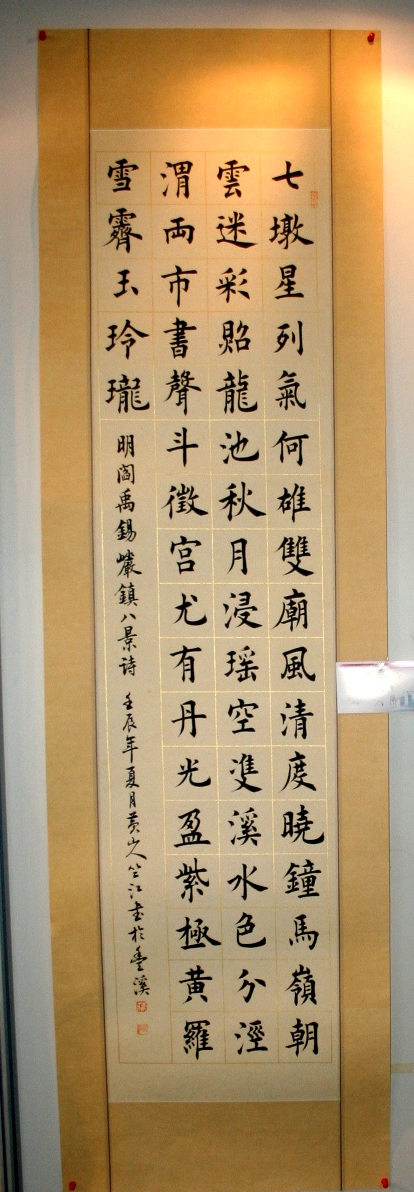 七墩星列氣何雄雙廟風清度曉鐘馬嶺朝
雲迷彩貽龍池秋月浸瑶空雙溪水色分涇
渭両市書聲斗徵宫尤有丹光盈紫極黃羅
雪霽玉玲瓏
明閻禹錫巖鎮八景诗
壬辰年夏月黄山人竺江书於豐溪